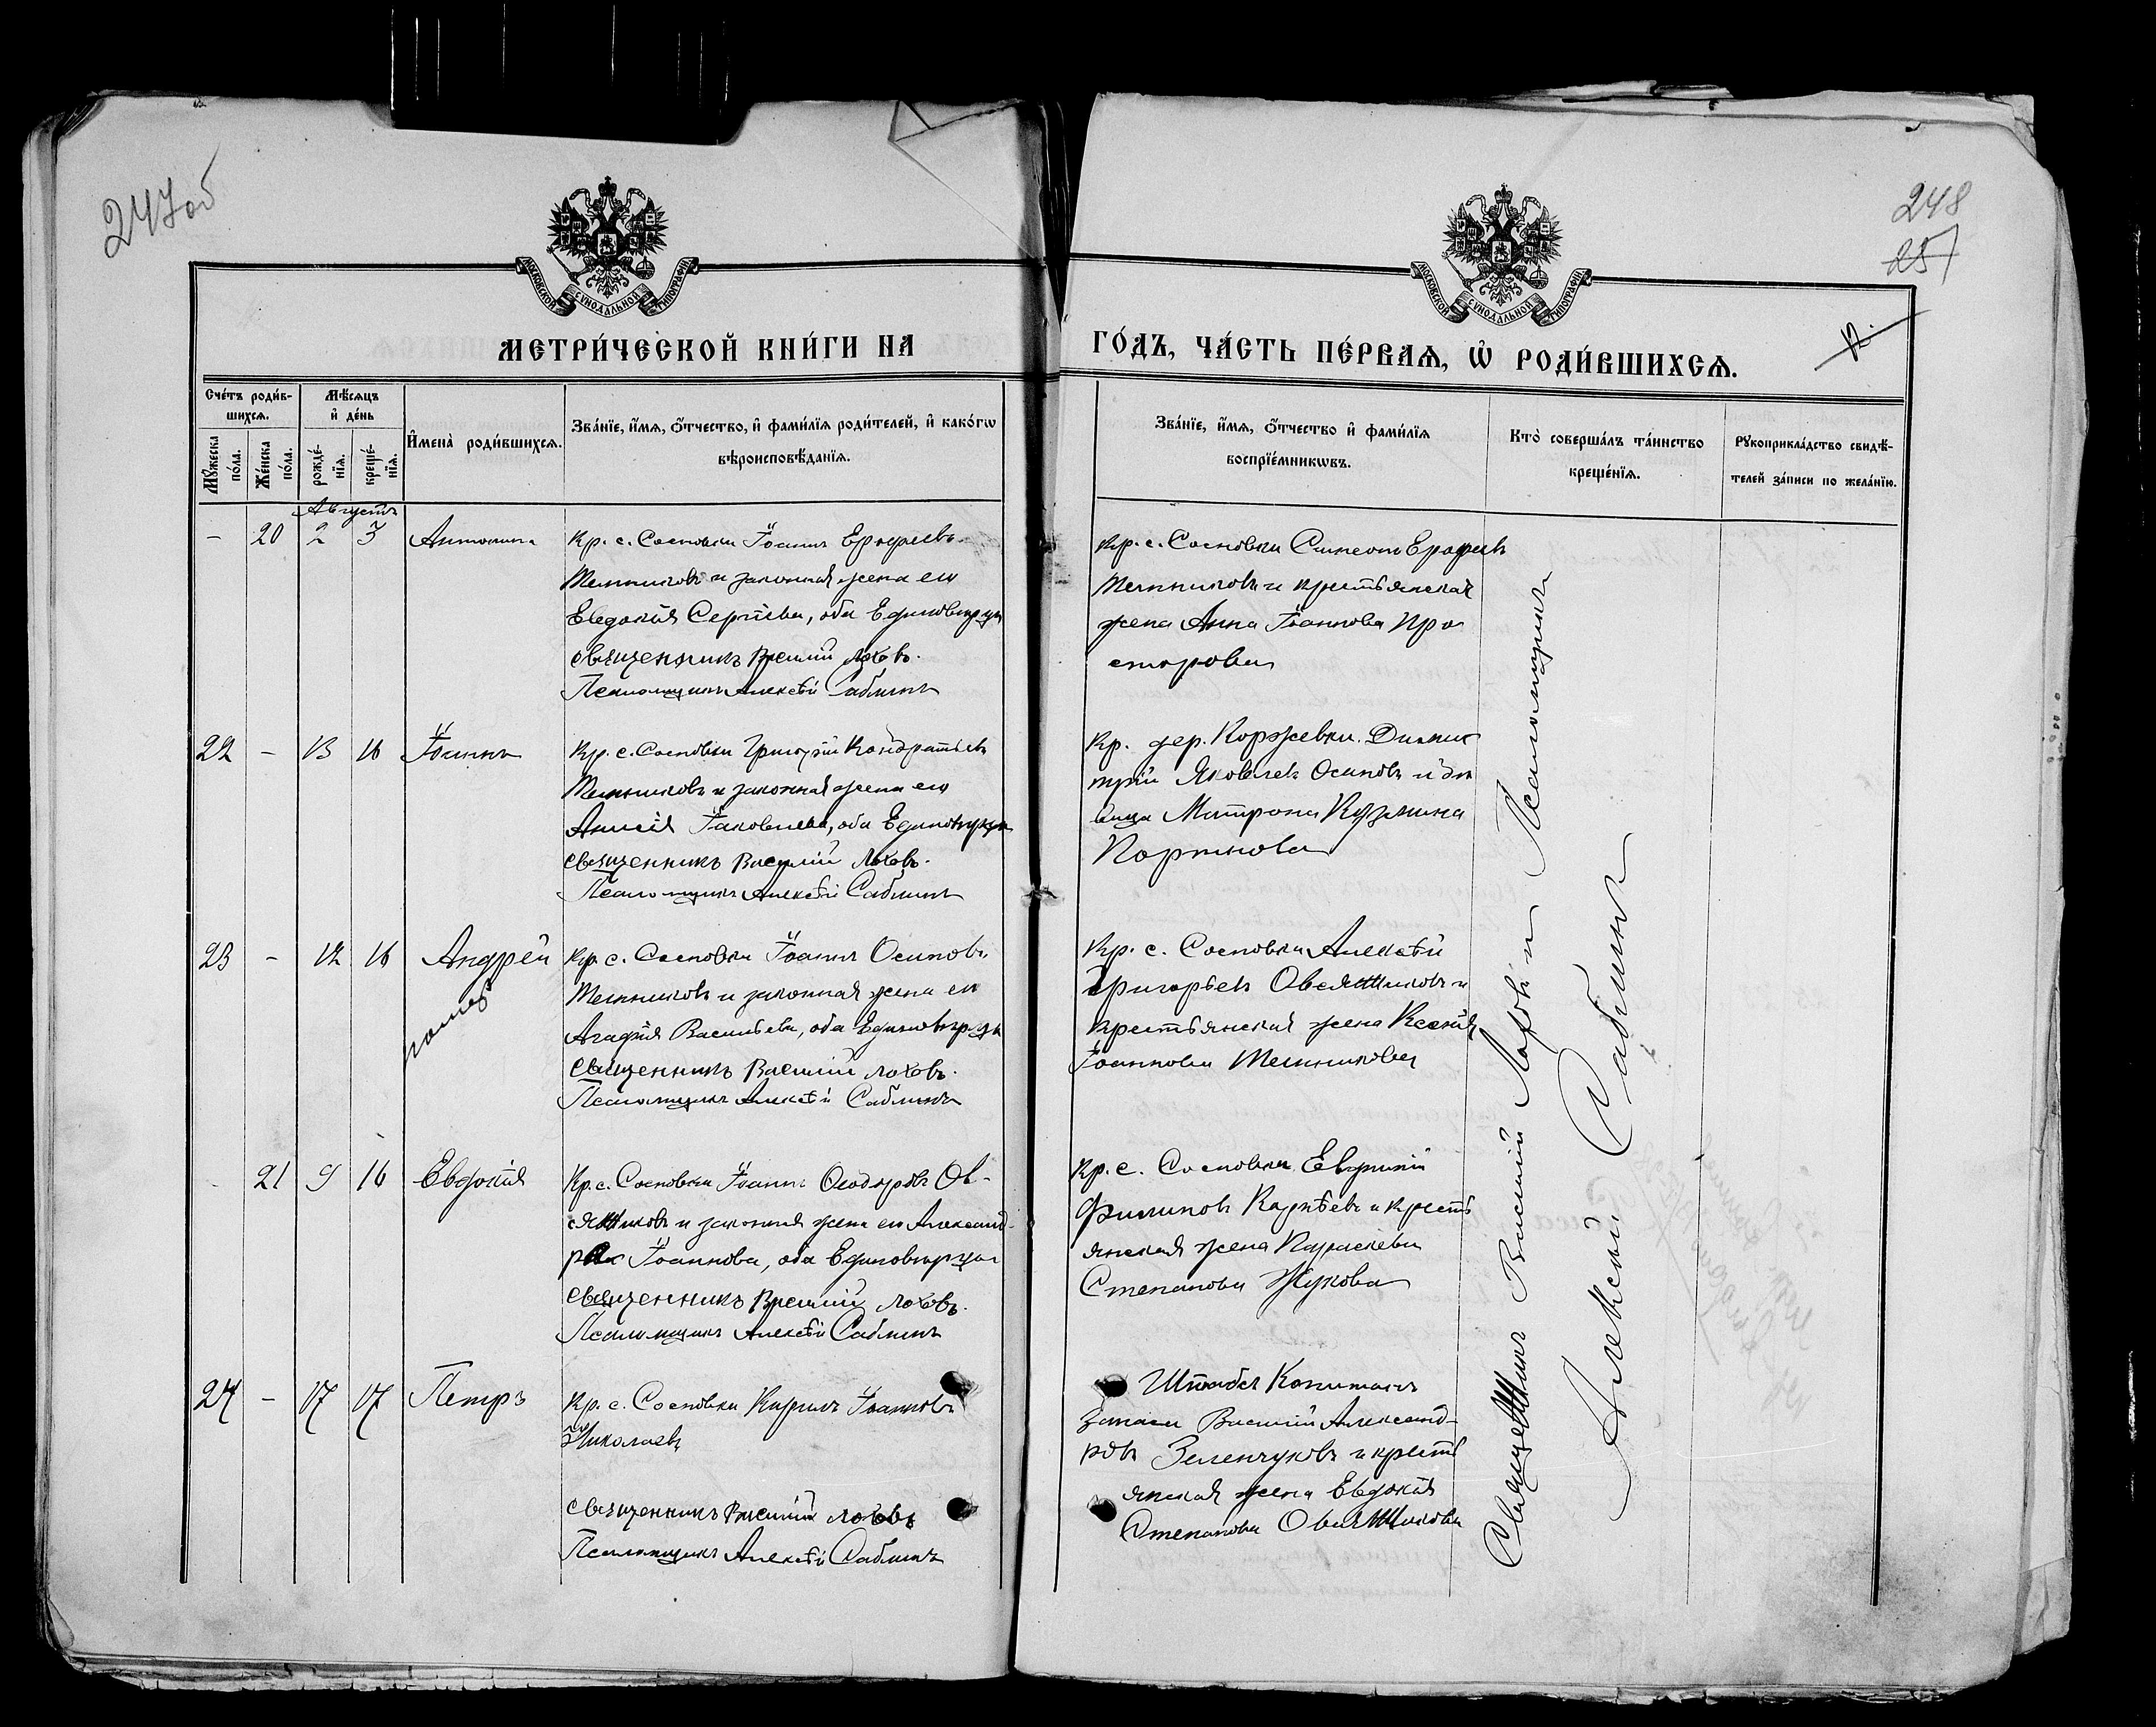 247об
248
25
12.
МОСКОВСКОЙ СѴНОДАЛЬНОЙ ТИПОГРАФІИ
МОСКОВСКОЙ СѴНОДАЛЬНОЙ ТИПОГРАФІИ
МЕТРИ́ЧЕСКОЙ КНИ́ГИ НА
ГО́ДЪ, ЧА́СТЬ ПЕ́РВАѦ, Ѡ҆ РОДИ́ВШИХСѦ.
Сче́тъ роди́в-
шихсѧ.
Мꙋ́жеска по́ла.
Же́нска по́ла.
Мѣ́сѧцъ
и҆ де́нь
рожде́-нїѧ.
креще́-нїѧ.
И҆мена̀ роди́вшихсѧ.
Зва́нїе, и҆́мѧ, ѻ҆́тчество, и҆ фами́лїѧ роди́телей, и҆ како́гѡ
вѣроисповѣ́данїѧ.
Зва́нїе, и҆́мѧ, ѻ҆́тчество и҆ фами́лїѧ
воспрїе́мникѡвъ.
Кто̀ соверша́лъ та́инство
креще́нїѧ.
Рꙋкоприкла́дство свидѣ́-
телей за́писи по жела́нїю.
Августъ
— 20 2 3 Антонина
Кр. с. Сосновки Іоаннъ Ерофеевъ
Мельниковъ и законная жена его
Евдокія Сергіева, оба Единоверцы
Священникъ Василій Лоховъ.
Псаломщикъ Алексѣй Саблинъ
Кр. с. Сосновки Симеонъ Ерофеевъ
Мельниковъ и крестьянская
жена Анна Іоаннова Про
сторова
22 — 13 16 Іоаннъ
Кр. с. Сосновки Григорій Кондратьевъ
Мельниковъ и законная жена его
Анисія Іаковлева, оба Единоверцы
Священникъ Василій Лоховъ.
Псаломщикъ Алексѣй Саблинъ
Кр. дер. Коржевки Дими
трій Яковлевъ Осиповъ и дѣ
вица Матрона Кузмина
Портнова
23 — 12 16 Андрей
Кр. с. Сосновки Іоаннъ Осиповъ
Мельниковъ и законная жена его
Агафія Васильева, оба Единоверцы
Священникъ Василій Лоховъ.
Псаломщикъ Алексѣй Саблинъ
Кр. с. Сосновки Алексѣй
Григорьевъ Овсянниковъ и
крестьянская жена Ксенія
Іоаннова Мельникова
21 9 16 Евдокія
Кр. с. Сосновки Іоаннъ Ѳеодоровъ Ов-
сянниковъ и законная жена его Александ-
ра Іоаннова, оба Единоверцы
Священникъ Василій Лоховъ.
Псаломщикъ Алексѣй Саблинъ
Кр. с. Сосновки
Филиповъ и крестъ
янская жена Параскева
Степанова Жукова
24 — 17 17 Петръ
Кр. с. Сосновки Кирилъ Іоанновъ
Николаевъ
Священникъ Василій Лоховъ
Псаломщикъ Алексѣй Саблинъ
Штабсъ Капитанъ
запаса Василій Александ-
ровъ Зеленчуковъ и крестъ
янская жена Евдокія
Степанова Овсянникова
Священникъ Василій Лоховъ и Псаломщикъ
Алексѣй Саблинъ